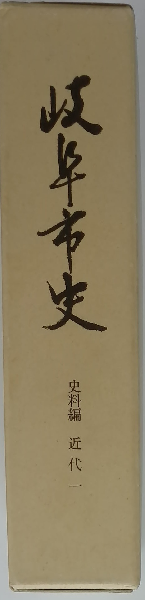 岐阜市史
史料編 近代一